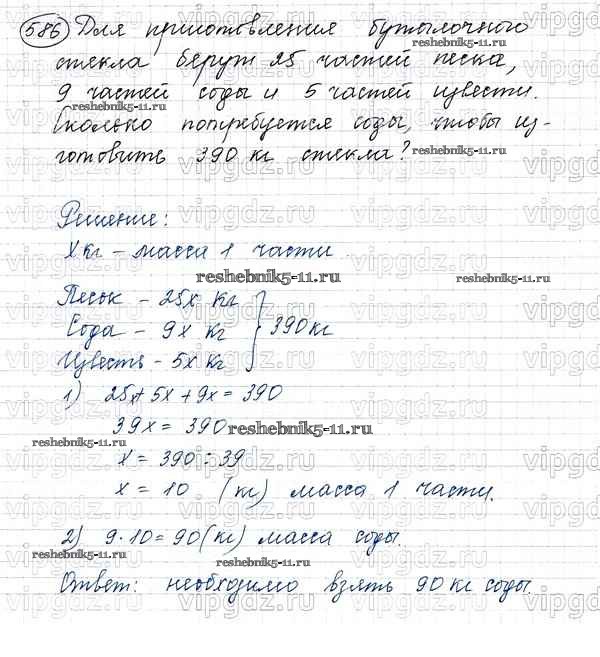 586 Для приготовления бутылочного
стекла берут 25 частей песка,
9 частей соды и 5 частей извести.
Сколько потребуется соды, чтобы из-
готовить 390 кг стекла?
Решение:
Xкг – масса 1 части.
Песок – 25x кг
Сода – 9x кг } 390кг
Известь – 5x кг
1) 25x + 5x + 9x = 390
39x = 390
x = 390 : 39
x = 10 (кг) масса 1 части.
2) 9 · 10 = 90 (кг) масса соды.
Ответ: необходимо взять 90 кг соды.
reshebnik5-11.ru
reshebnik5-11.ru
reshebnik5-11.ru
reshebnik5-11.ru
reshebnik5-11.ru
reshebnik5-11.ru
reshebnik5-11.ru
reshebnik5-11.ru
reshebnik5-11.ru
reshebnik5-11.ru
vipgdz.ru